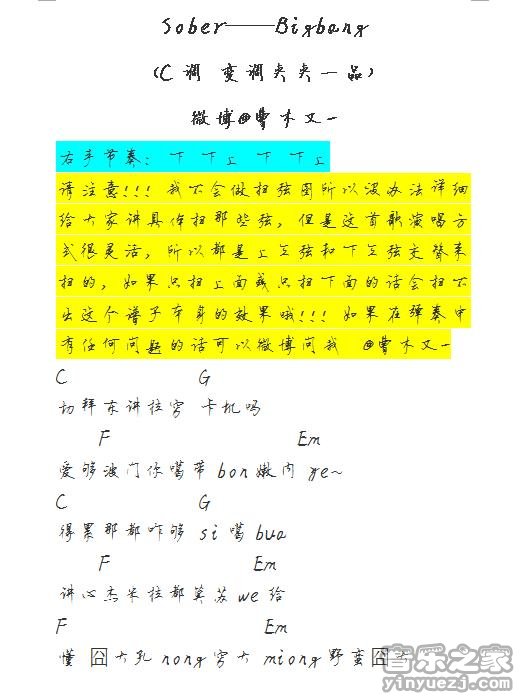 Sober——Bigbang
(C 调 变调夹夹一品)
微博@曹木又一
右手节奏: 下 下上 下 下上
请注意!!! 我不会做扫弦图所以没办法详细
给大家讲具体扫那些弦, 但是这首歌演唱方
式很灵活, 所以都是上三弦和下三弦交替来
扫的, 如果只扫上面或只扫下面的话会扫不
出这个谱子本身的效果哦!!! 如果在弹奏中
有任何问题的话可以微博问我 @曹木又一
C G
切拜东讲拉穷 卡机吗
F Em
爱够波门你噶带 bon 嫩内 ye~
C G
得累那都咋够 si 噶 bua
F Em
讲心杰米拉都莫苏 we 给
F Em
懂 囧大孔 nong 穷大 miong 野蛮囧大
音乐之家
yinyuezj.com